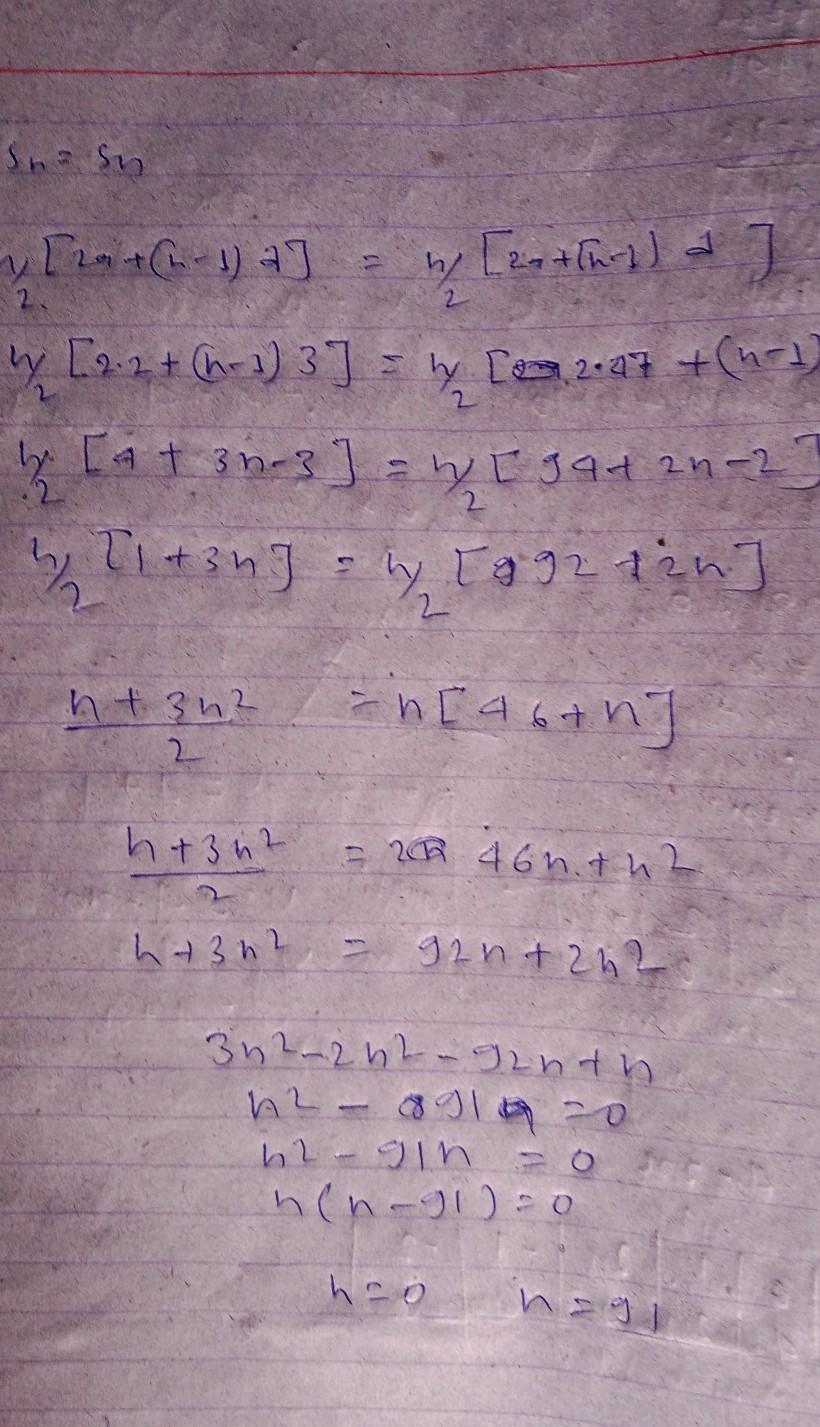 Sn = Sn
n/2 [2a+(n-1) d] = n/2 [2a+(n-1) d ]
n/2 [2.2+(n-1) 3] = n/2 [2.47 +(n-1)
n/2 [4 + 3n-3] = n/2 [94+ 2n-2]
n/2 [1+3n] = n/2 [92+2n]
n + 3n2 / 2 = n[46+n]
n+3n2 / 2 = 46n+n2
n+3n2 = 92n+2n2
3n2-2n2-92n+n
n2 - 91n =0
n2-91n = 0
n(n-91)=0
n=0 n=91